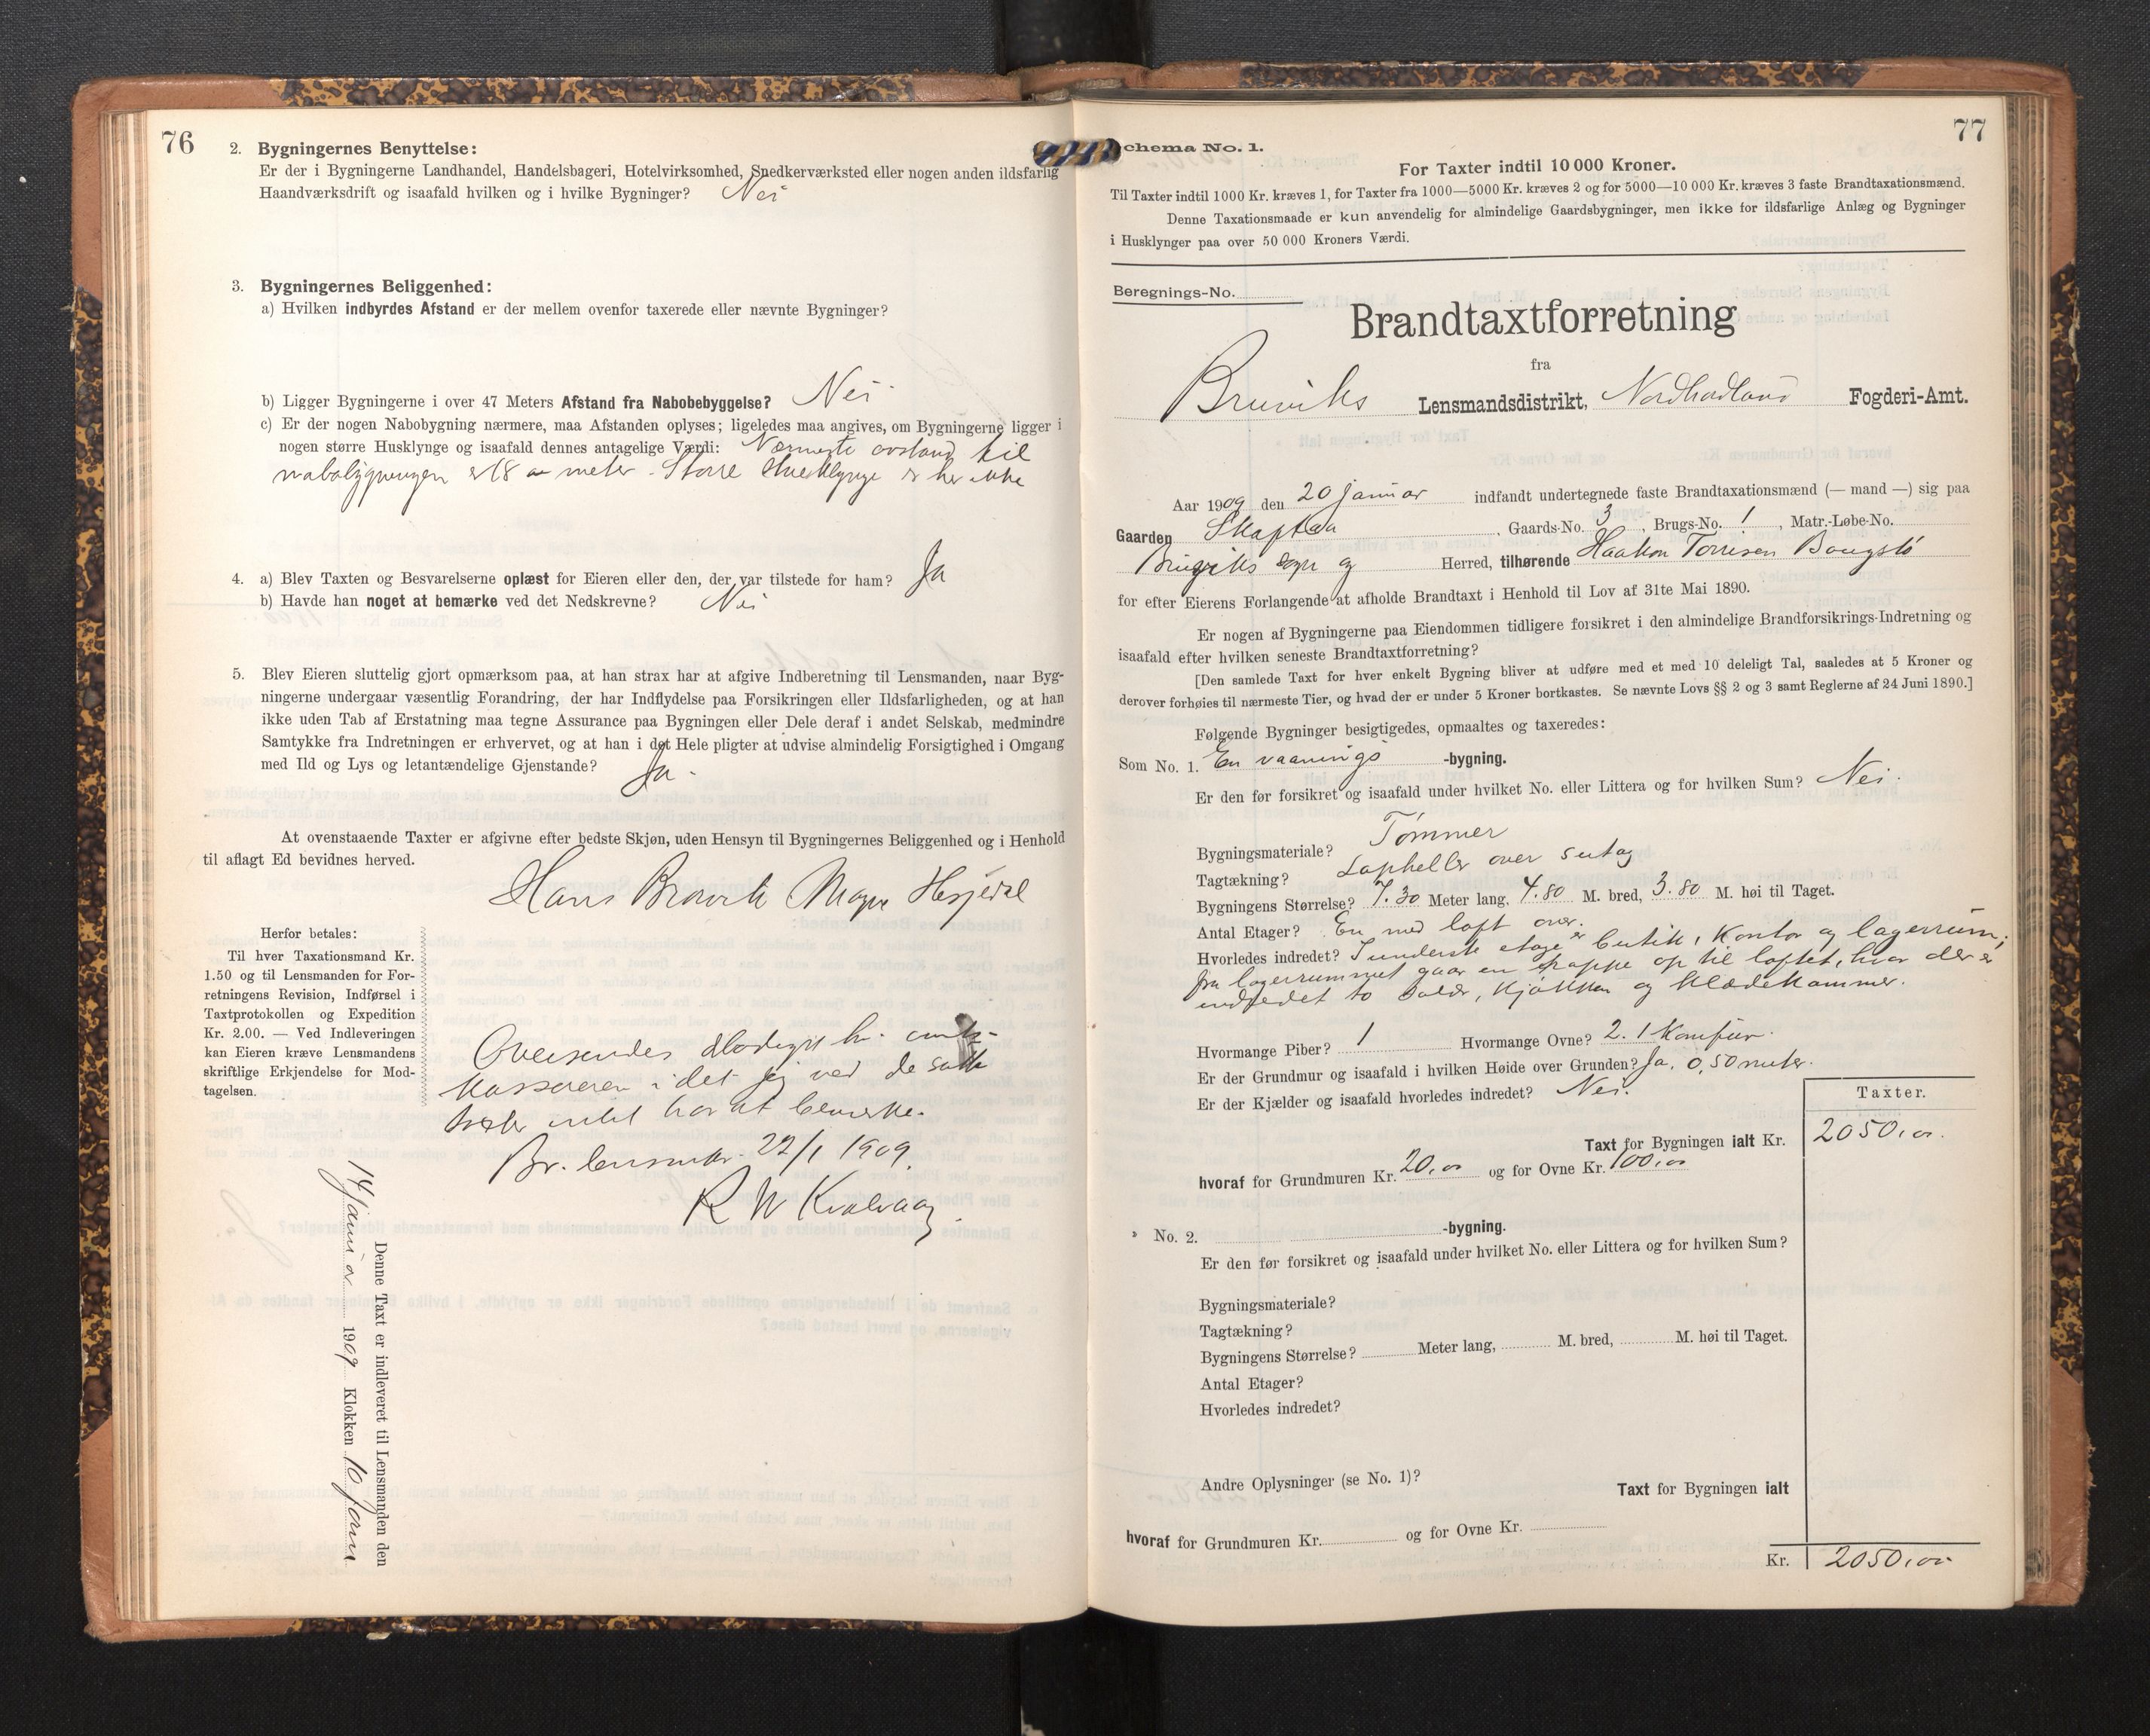 76
2. Bygningernes Benyttelse:
Er der i Bygningerne Landhandel, Handelsbageri, Hotelvirksomhed, Snedkerværksted eller nogen anden ildsfarlig
Haandværksdrift og isaafald hvilken og i hvilke Bygninger? Nei
3. Bygningernes Beliggenhed:
a) Hvilken indbyrdes Afstand er der mellem ovenfor taxerede eller nævnte Bygninger?
b) Ligger Bygningerne i over 47 Meters Afstand fra Nabobebyggelse? Nei
c) Er der nogen Nabobygning nærmere, maa Afstanden oplyses; ligeledes maa angives, om Bygningerne ligger i
nogen større Husklynge og isaafald dennes antagelige Værdi: Nærmeste avstand til
nabobygningen er 18 meter. Større Husklynge er her ikke
4. a) Blev Taxten og Besvarelserne oplæst for Eieren eller den, der var tilstede for ham? Ja
b) Havde han noget at bemærke ved det Nedskrevne? Nei
5. Blev Eieren sluttelig gjort opmærksom paa, at han strax har at afgive Indberetning til Lensmanden, naar Byg-
ningerne undergaar væsentlig Forandring, der har Indflydelse paa Forsikringen eller Ildsfarligheden, og at han
ikke uden Tab af Erstatning maa tegne Assurance paa Bygningen eller Dele deraf i andet Selskab, medmindre
Samtykke fra Indretningen er erhvervet, og at han i det Hele pligter at udvise almindelig Forsigtighed i Omgang
med Ild og Lys og letantændelige Gjenstande? Ja.
At ovenstaaende Taxter er afgivne efter bedste Skjøn, uden Hensyn til Bygningernes Beliggenhed og i Henhold
til aflagt Ed bevidnes herved.
Hans Magne Hesjedal
Herfor betales:
Til hver Taxationsmand Kr.
1.50 og til Lensmanden for For-
retningens Revision, Indførsel i
Taxtprotokollen og Expedition
Kr. 2.00. — Ved Indleveringen
kan Eieren kræve Lensmandens
skriftlige Erkjendelse for Mod-
tagelsen.
Oversendes hr. amts-
kassereren idet jeg ved de satte
taxter intet har at bemerke.
Br. lensmkr. 22/1 1909.
R W Kvalvaag.
Denne Taxt er indleveret til Lensmanden den
14 januar 1909 Klokken 10 form
77
Schema No. 1.
For Taxter indtil 10 000 Kroner.
Til Taxter indtil 1000 Kr. kræves 1, for Taxter fra 1000—5000 Kr. kræves 2 og for 5000—10 000 Kr. kræves 3 faste Brandtaxationsmænd.
Denne Taxationsmaade er kun anvendelig for almindelige Gaardsbygninger, men ikke for ildsfarlige Anlæg og Bygninger
i Husklynger paa over 50 000 Kroners Værdi.
Beregnings-No.
Brandtaxtforretning
fra
Bruviks Lensmandsdistrikt, Nordhordland Fogderi-Amt.
Aar 1909 den 20 januar indfandt undertegnede faste Brandtaxationsmænd (— mand —) sig paa
Gaarden Skaptaa, Gaards-No. 3, Brugs-No. 1, Matr.-Løbe-No.
Bruviks sogn og Herred, tilhørende Haakon Torrisen
for efter Eierens Forlangende at afholde Brandtaxt i Henhold til Lov af 31te Mai 1890.
Er nogen af Bygningerne paa Eiendommen tidligere forsikret i den almindelige Brandforsikrings-Indretning og
isaafald efter hvilken seneste Brandtaxtforretning?
[Den samlede Taxt for hver enkelt Bygning bliver at udføre med et med 10 deleligt Tal, saaledes at 5 Kroner og
derover forhøies til nærmeste Tier, og hvad der er under 5 Kroner bortkastes. Se nævnte Lovs §§ 2 og 3 samt Reglerne af 24 Juni 1890.]
Følgende Bygninger besigtigedes, opmaaltes og taxeredes:
Som No. 1. En vaanings -bygning.
Er den før forsikret og isaafald under hvilket No. eller Littera og for hvilken Sum? Nei.
Bygningsmateriale? Tømmer
Tagtækning? Lapheller over sutag
Bygningens Størrelse? 7.30 Meter lang, 4.80 M. bred, 3.80 M. høi til Taget.
Antal Etager? En med loft over.
Hvorledes indredet? I underste etage er butik, kontor og lagerrum;
fra lagerrummet gaar en trappe op til loftet, hvor der er
indredet to saler, kjøkken og klædekammer.
Hvormange Piber? 1 Hvormange Ovne? 2. 1 Komfür.
Er der Grundmur og isaafald i hvilken Høide over Grunden? Ja. 0,50 meter.
Er der Kjælder og isaafald hvorledes indredet? Nei.
Taxter.
Taxt for Bygningen ialt Kr. 2050,00.
hvoraf for Grundmuren Kr. 20,00 og for Ovne Kr. 100,00
» No. 2. -bygning.
Er den før forsikret og isaafald under hvilket No. eller Littera og for hvilken Sum?
Bygningsmateriale?
Tagtækning?
Bygningens Størrelse? Meter lang, M. bred, M. høi til Taget.
Antal Etager?
Hvorledes indredet?
Andre Oplysninger (se No. 1)?
Taxt for Bygningen ialt
hvoraf for Grundmuren Kr. og for Ovne Kr.
Kr. 2050,00